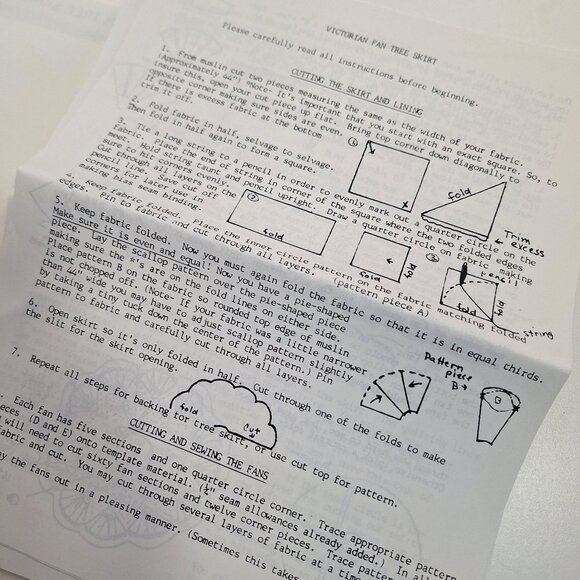 VICTORIAN FAN TREE SKIRT
Please carefully read all instructions before beginning.
CUTTING THE SKIRT AND LINING
1. From muslin cut two pieces measuring the same as the width of your fabric.
(Approximately 44") *Note- It's important that you start with an exact square. So, to
insure this, open your cut piece up flat. Bring top corner down diagonally to
opposite corner making sure sides are even.
If there is excess fabric at the bottom
trim it off.
2. Fold fabric in half, selvage to selvage.
Then fold in half again to form a square.
3. Tie a long string to a pencil in order to evenly mark out a quarter circle on the
fabric. Place the end of string in corner of the square where the two folded edges
meet. Hold string taunt and pencil upright. Draw a quarter circle on fabric making
sure to hit corners evenly.
Cut through all layers on the
corners line. Save cut off
pieces for later use in
making bias seam binding.
4. Keep fabric folded. Place the inner circle pattern on the fabric matching folded
edges. Pin to fabric and cut through all layers. (pattern piece A)
5. Keep fabric folded. Now you must again fold the fabric so that it is in equal thirds.
Make sure it is even and equal! Now you have a pie-shaped
piece. Lay the scallop pattern over the pie-shaped piece
making sure the *'s are on the fold lines on either side.
Place pattern B on the fabric so rounded top edge of muslin
is not chopped off. (Note- If your fabric was a little narrower
than 44" wide you may have to adjust scallop pattern slightly
by taking a tiny tuck down the center of the pattern.) Pin
pattern to fabric and carefully cut through all layers.
6. Open skirt so it's only folded in half. Cut through one of the folds to make
the slit for the skirt opening.
7. Repeat all steps for backing for tree skirt, or use cut top for pattern.
①
x
fold
Trim
← excess
②
fold
fold
fold
③
pencil
fold
fold
string
Pattern
piece
B →
B
fold
Cut
CUTTING AND SEWING THE FANS
Each fan has five sections and one quarter circle corner. Trace appropriate pattern
pieces (D and E) onto template material. (¼" seam allowances already added.) In all
will need to cut sixty fan sections and twelve corner pieces. Trace pattern
fabric and cut. You may cut through several layers of fabric at a time
the fans out in a pleasing manner. (Sometimes this takes